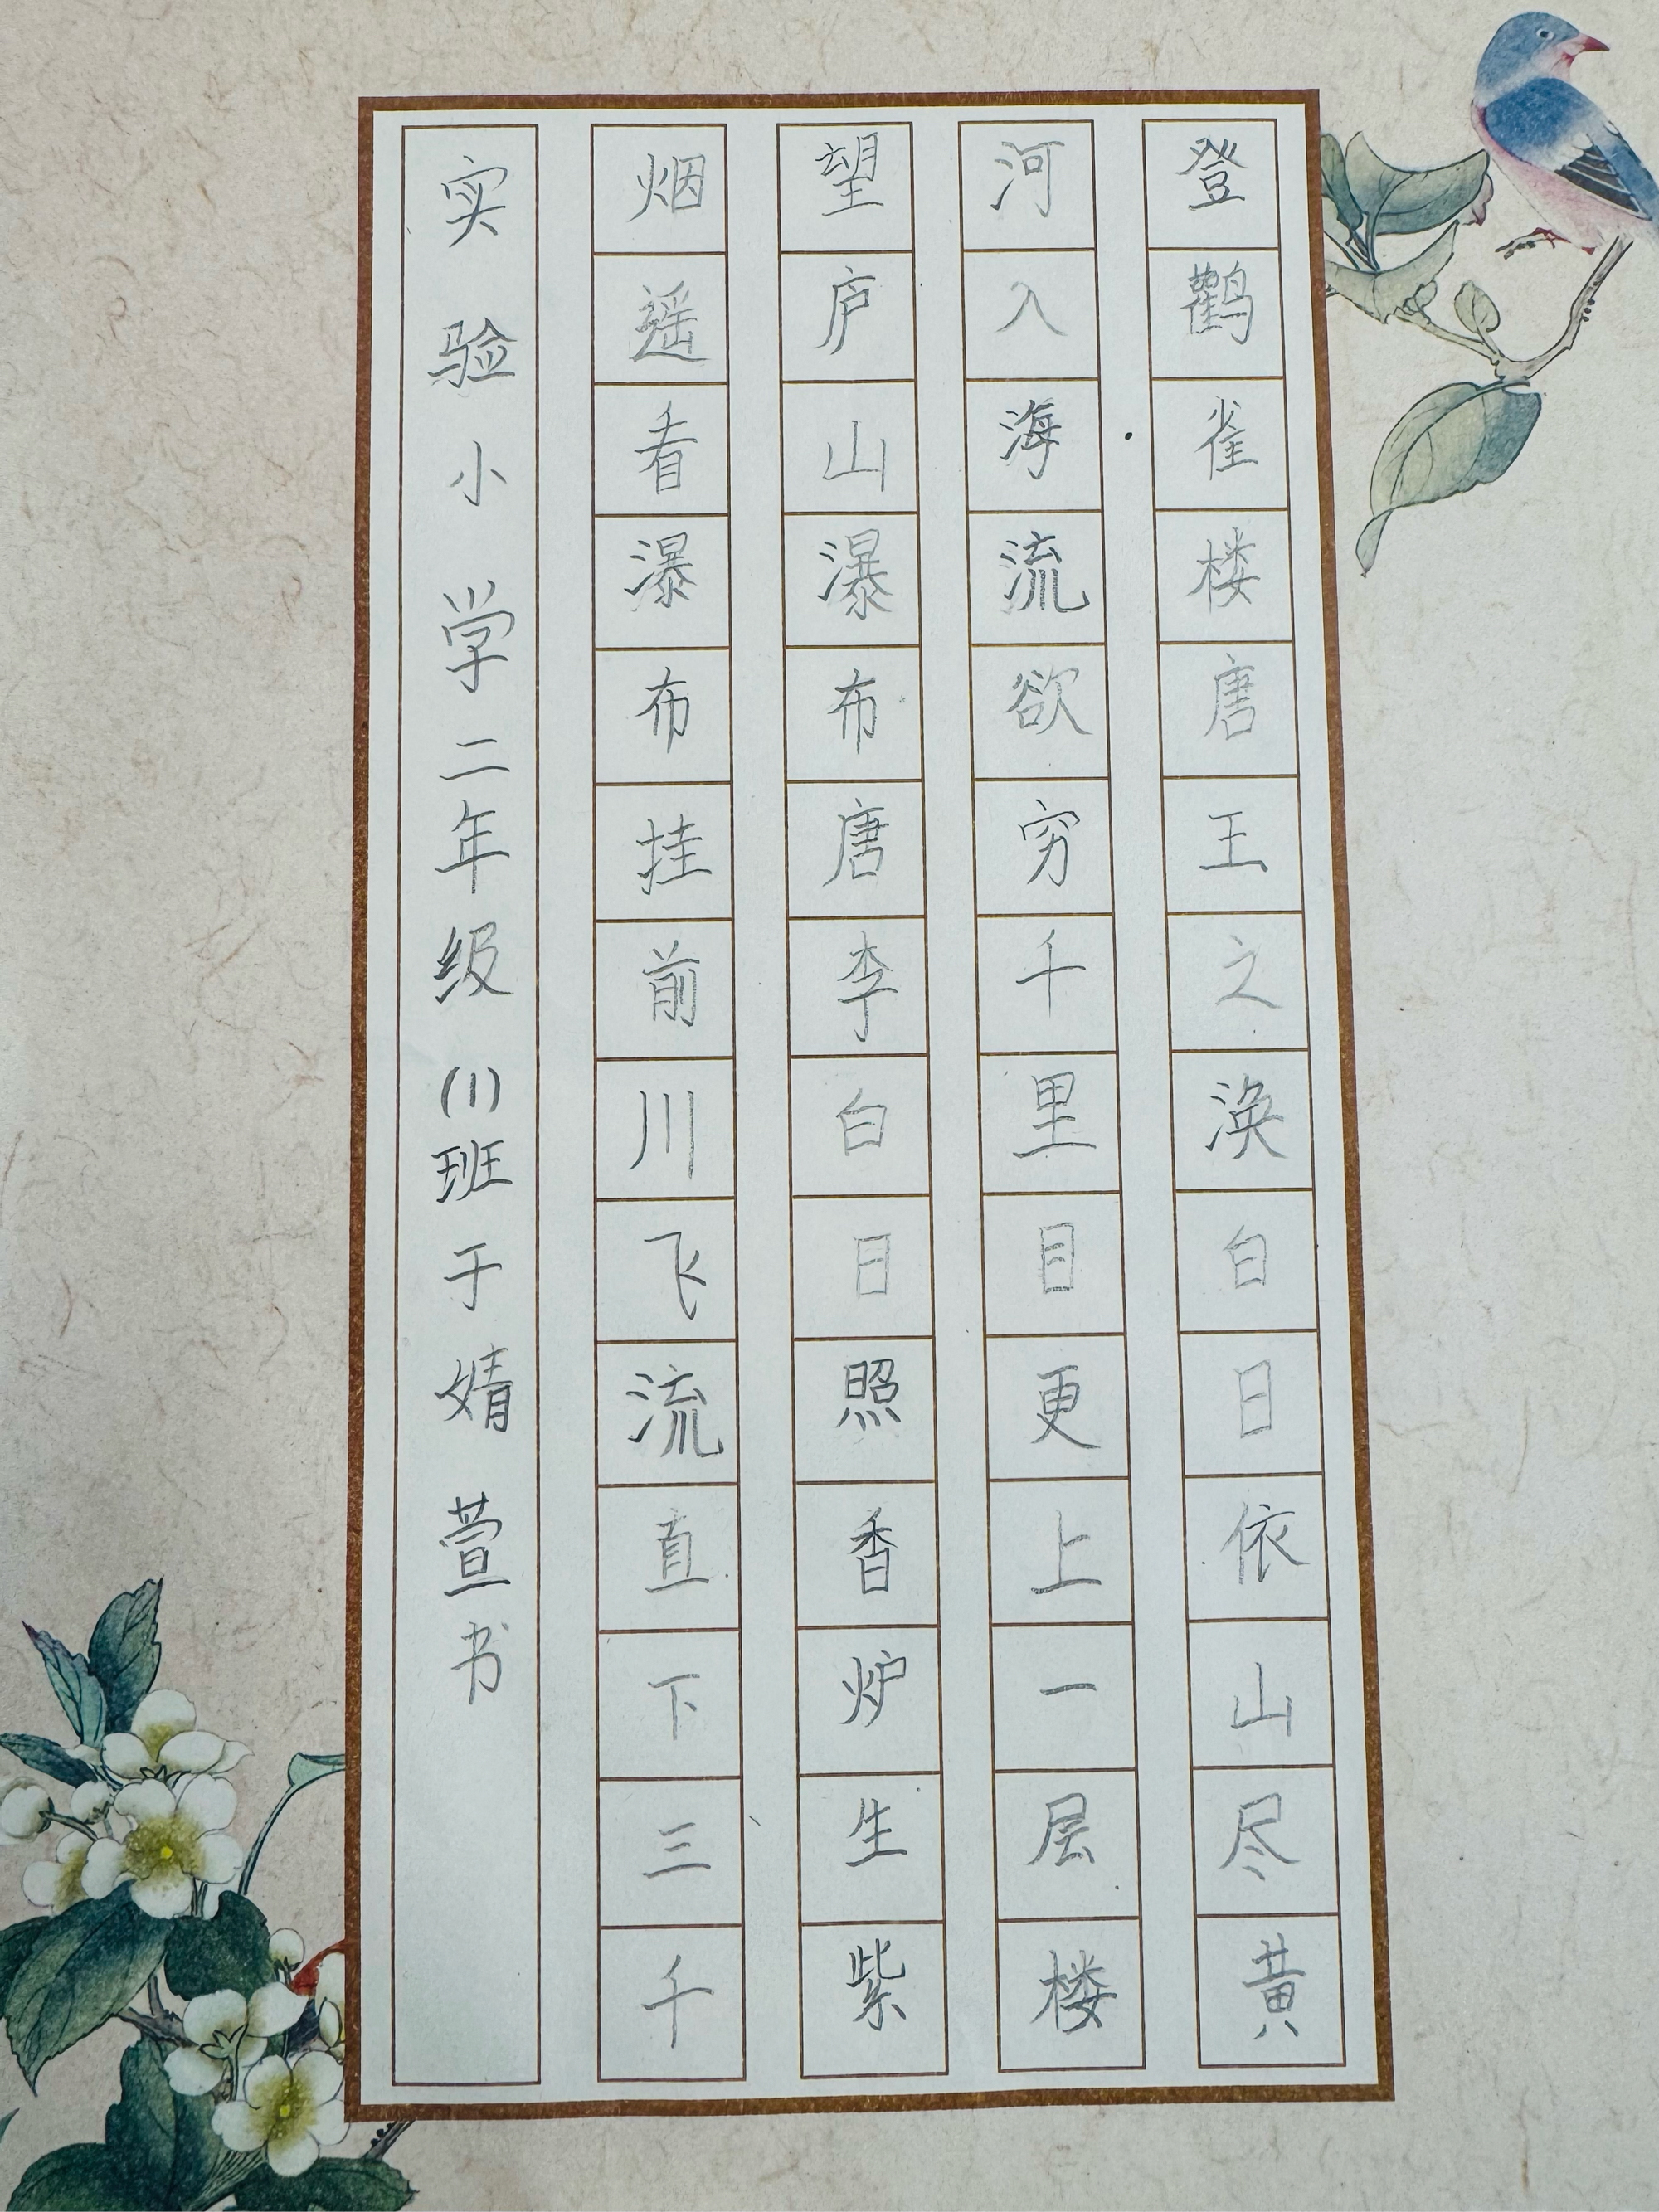 登鹳雀楼唐王之涣白日依山尽黄
河入海流欲穷千里目更上一层楼
望庐山瀑布唐李白日照香炉生紫
烟遥看瀑布挂前川飞流直下三千
实验小学二年级(1)班于婧萱书